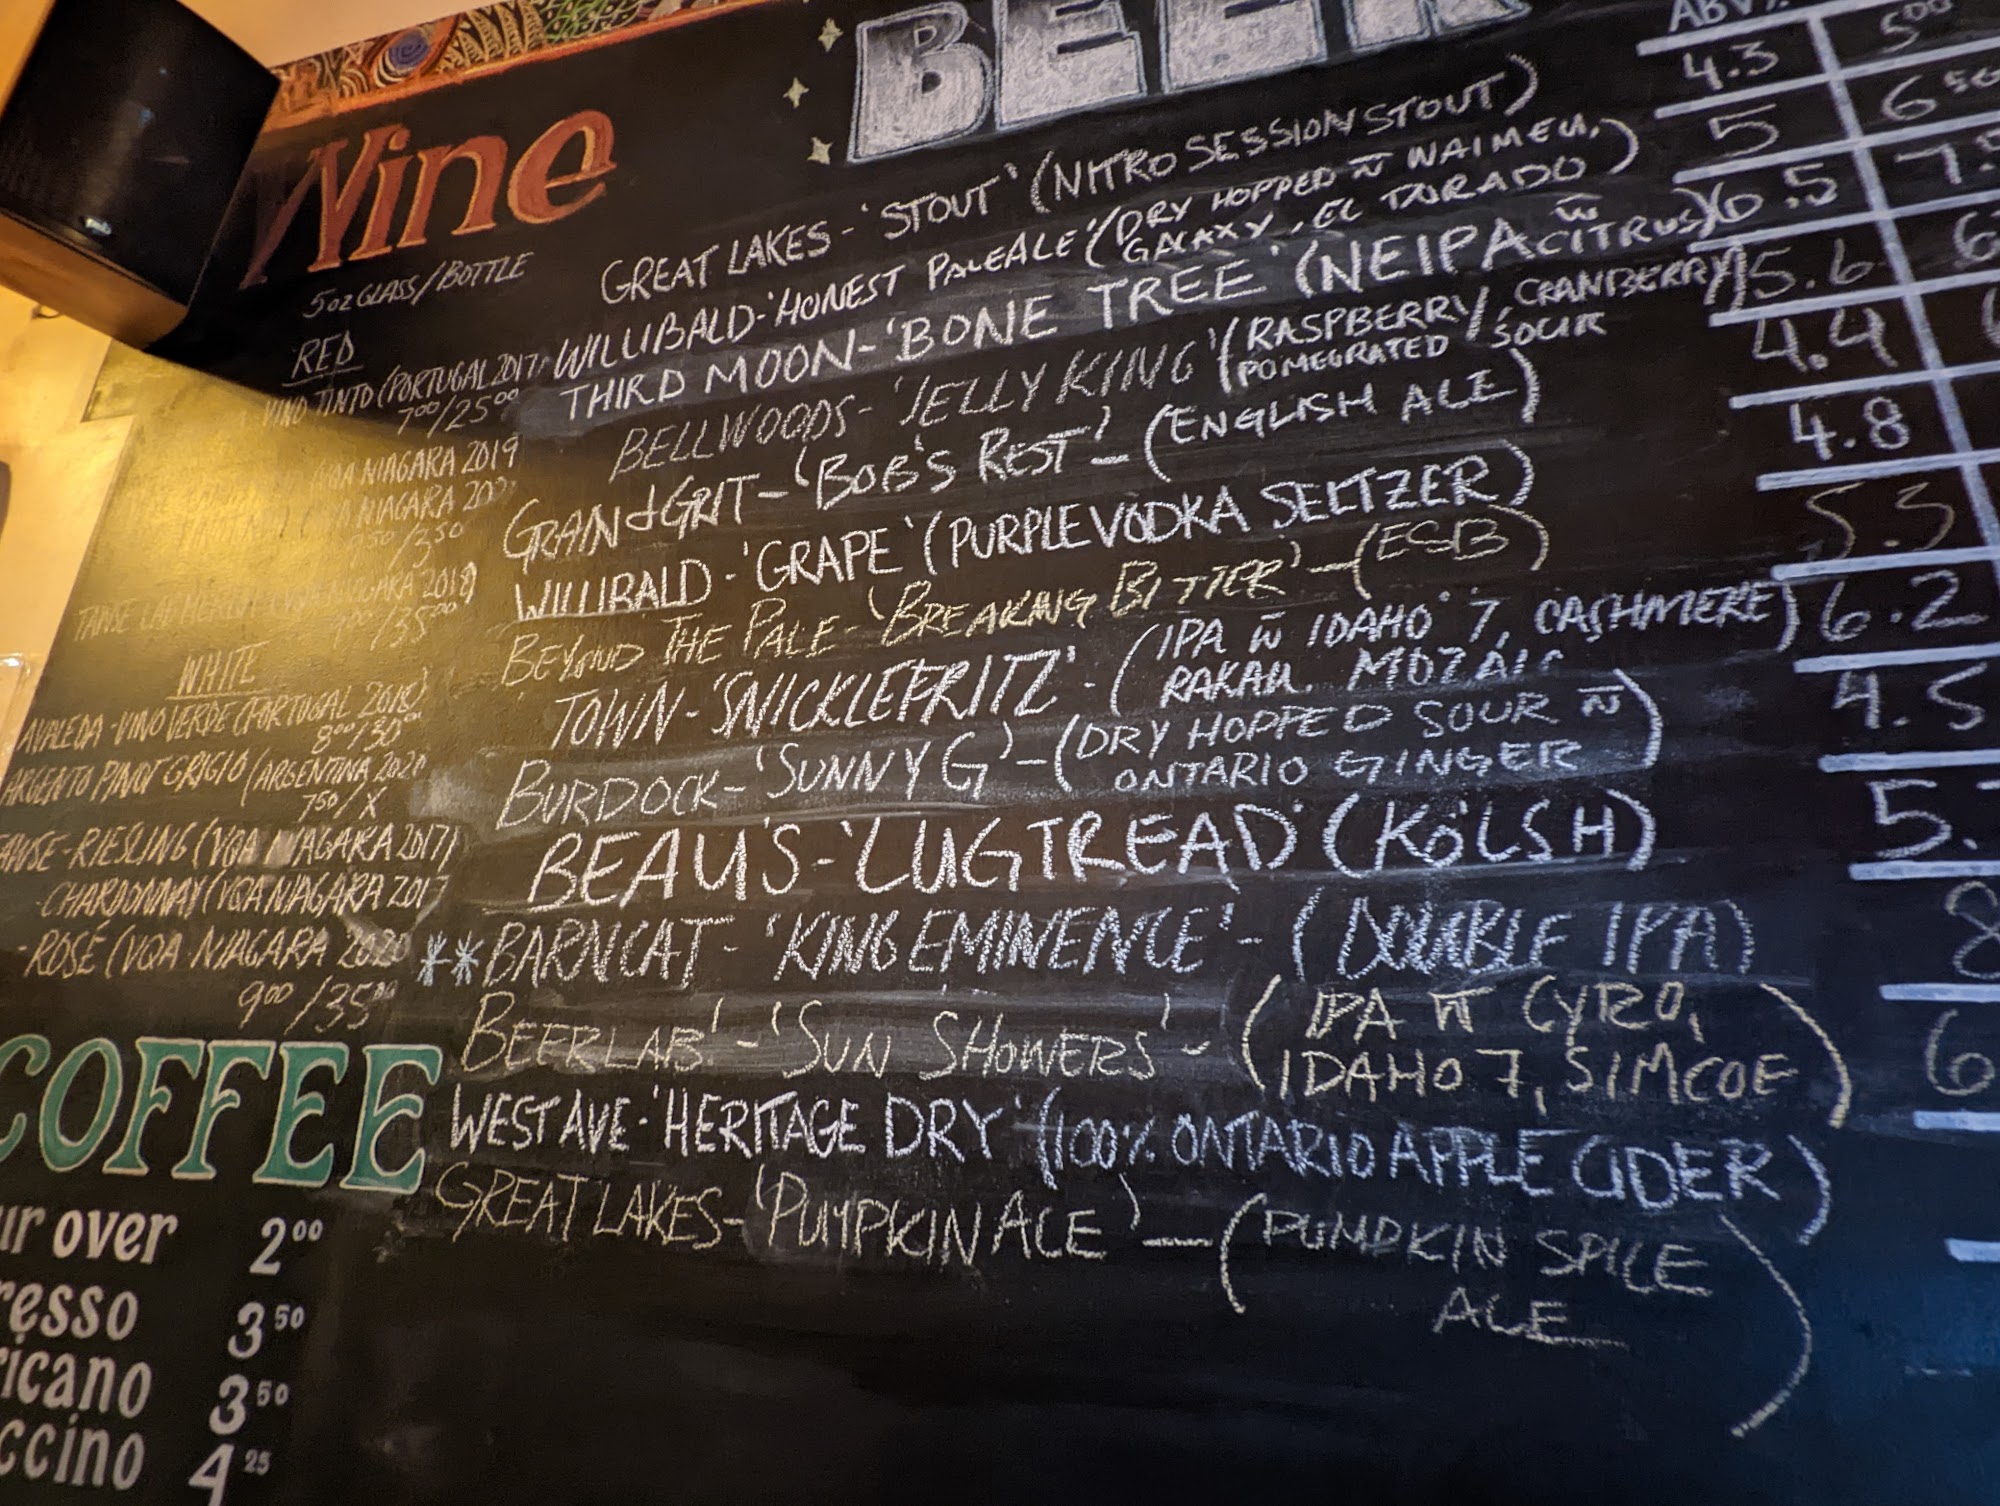 Wine
5oz GLASS/BOTTLE
RED
VINO TINTO (PORTUGAL 2017)
7⁰⁰/25⁰⁰
VQA NIAGARA 2019
NIAGARA
/350
2018)
/35⁰⁰
WHITE
AVALEDA - VINO VERDE (PORTUGAL 2018)
8⁰⁰/30⁰⁰
ARGENTO PINOT GRIGIO (ARGENTINA 2021
750/X
RIESLING (VQA NIAGARA 2017)
- CHARDONNAY (VQA NIAGARA 2017
- ROSÉ (VQA NIAGARA 2020
9⁰⁰/35⁰⁰
COFFEE
over 2⁰⁰
3⁵⁰
3⁵⁰
4²⁵
BEER
ABV%
GREAT LAKES - 'STOUT' (NITRO SESSION STOUT) 4.3 5⁰⁰
WILLIBALD - 'HONEST PALE ALE' (DRY HOPPED w̄ WAIMEU, 5 6⁵⁰
GALAXY, EL DORADO)
THIRD MOON - 'BONE TREE' (NEIPA w̄ CITRUS) 6.5
BELLWOODS - 'JELLY KING' (RASPBERRY, CRANBERRY, 5.6
POMEGRATED SOUR
GRAIN & GRIT - 'BOB'S REST' - (ENGLISH ALE) 4.4
WILLIBALD - 'GRAPE' (PURPLE VODKA SELTZER) 4.8
BEYOND THE PALE - 'BREAKING BITTER' - (ESB) 5.5
TOWN - 'SNICKLEFRITZ' - (IPA w̄ IDAHO 7, CASHMERE) 6.2
RAKAU, MOZAIC
BURDOCK - 'SUNNY G' - (DRY HOPPED SOUR w̄ 4.5
ONTARIO GINGER)
BEAU'S - 'LUGTREAD' (KÖLSH) 5.
**BARNCAT - 'KING EMINENCE' - (DOUBLE IPA) 8
BEERLAB! - 'SUN SHOWERS' - (IPA w̄ CYRO, 6
IDAHO 7, SIMCOE)
WEST AVE - 'HERITAGE DRY' (100% ONTARIO APPLE CIDER)
GREAT LAKES - 'PUMPKIN ALE' — (PUMPKIN SPICE
ALE)